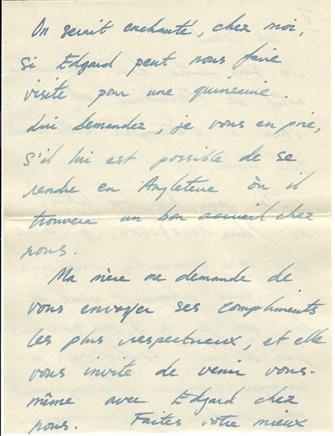 On serait enchanté, chez moi,
si Edgard peut nous faire
visite pour une quinzaine.
Lui demandez, je vous en prie,
s'il lui est possible de se
rendre en Angleterre où il
trouvera un bon accueil chez
nous.
Ma mère me demande de
vous envoyer ses compliments
les plus respectueux, et elle
vous invite de venir vous-
même avec Edgard chez
nous. Faites votre mieux